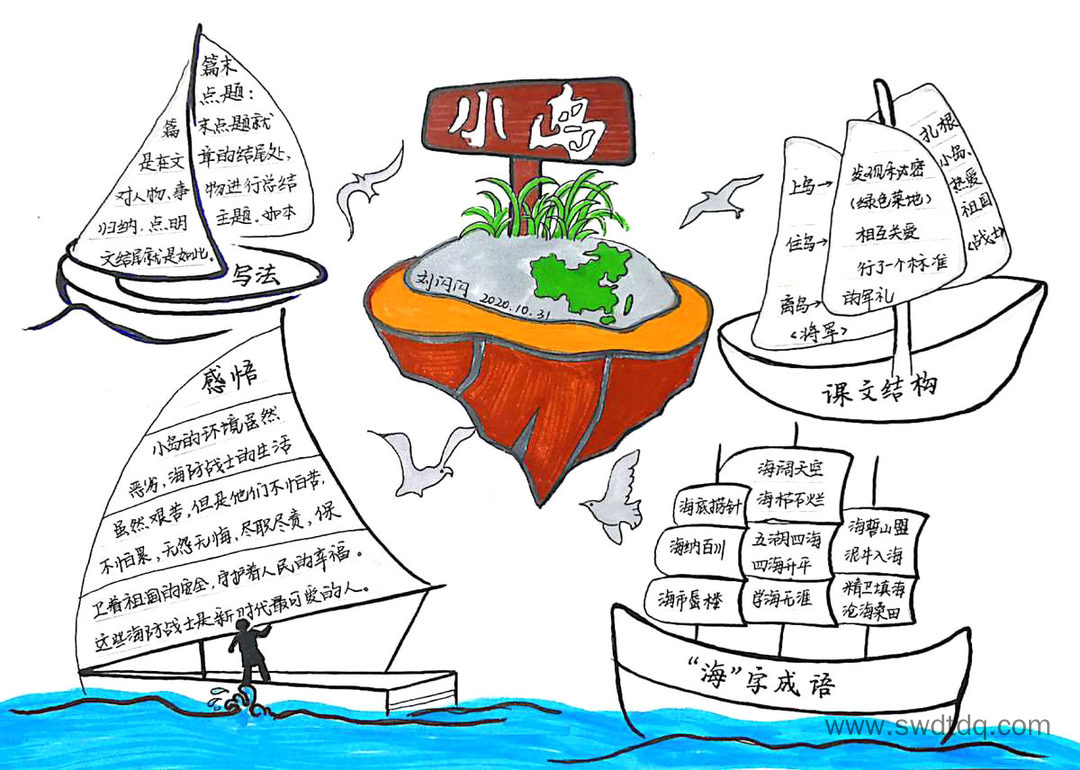 小岛
刘闪闪 2020.10.31
篇末
点题：
篇末点题就
是在文章的结尾处，
对人物、事物进行总结
归纳，点明主题。如本
文结尾就是如此。
写法
上岛→ 发现秘密
(绿色菜地)
住岛→ 相互关爱
行了一个标准
离岛→ 的军礼
〈将军〉
扎根
小岛、
热爱
祖国
〈战士〉
课文结构
感悟
小岛的环境虽然
恶劣，海防战士的生活
虽然艰苦，但是他们不怕苦，
不怕累，无怨无悔，尽职尽责，保
卫着祖国的安全，守护着人民的幸福。
这些海防战士是新时代最可爱的人。
海阔天空
海枯石烂
海底捞针
海纳百川
五湖四海
四海升平
海誓山盟
泥牛入海
海市蜃楼
学海无涯
精卫填海
沧海桑田
“海”字成语
www.swdtdq.com